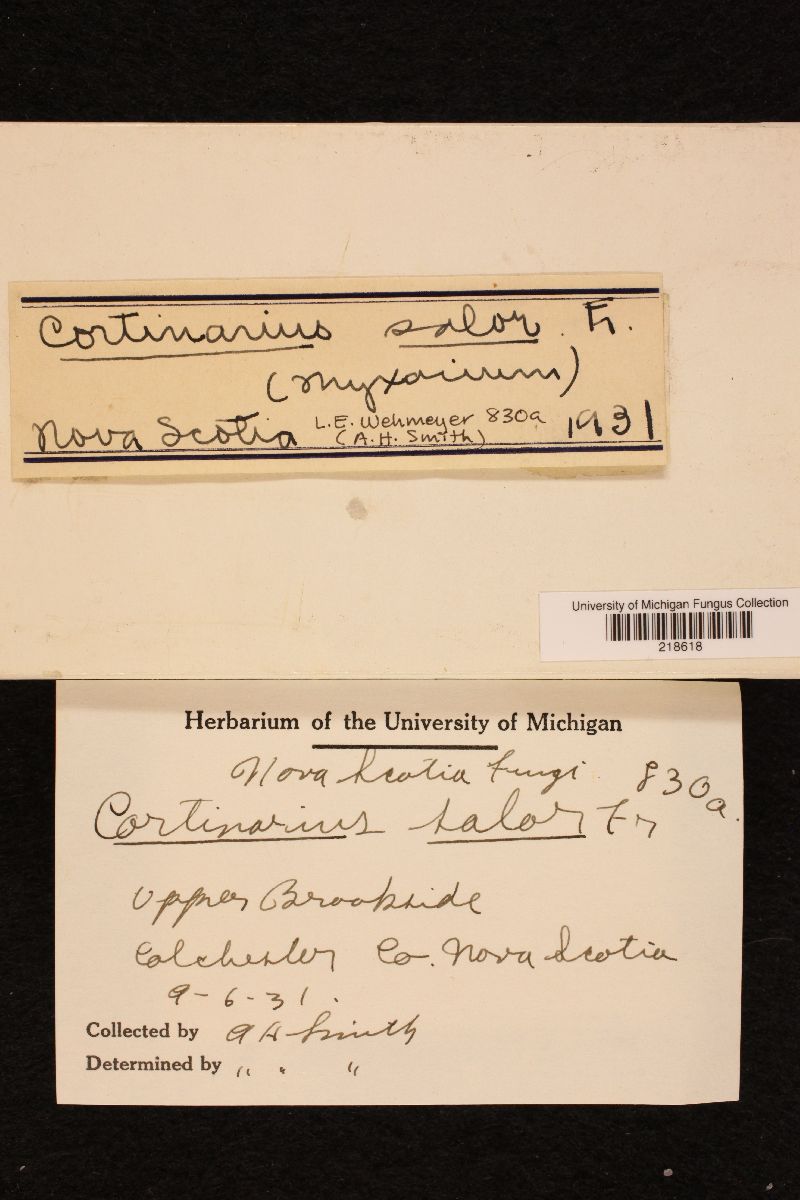 Cortinarius salor. Fr.
(Myxacium)
Nova Scotia L.E. Wehmeyer 830a 1931
(A.H. Smith)
University of Michigan Fungus Collection
218618
Herbarium of the University of Michigan
Nova Scotia Fungi 830a.
Cortinarius salor Fr
Upper Brookside
Colchester Co. Nova Scotia
9-6-31.
Collected by A H Smith
Determined by " " "